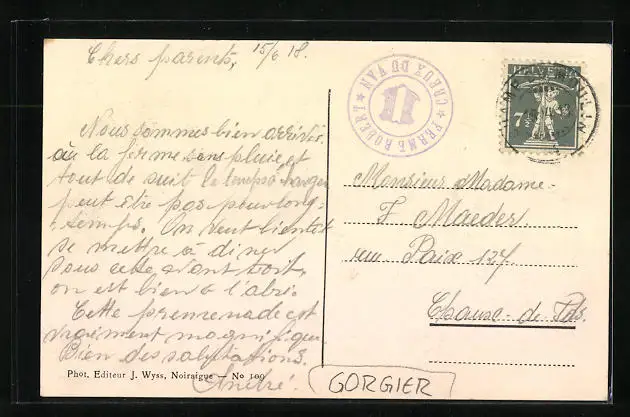 Chers parents, 15/6 18.
Nous sommes bien arrivés
à la ferme sans pluie et
tout de suit le temps à changer
peut être pas pour long-
temps. On veut bientot
se mettre à diner
sous cette avant toit,
on est bien a l'abri.
Cette premenade est
vraiment magnifique.
Bien des salutations.
André.
FERME ROBERT
CREUX DU VAN
HELVETIA
7½
Monsieur Madame
F. Maeder
rue Paix 127
Chaux-de-Fds.
Phot. Editeur J. Wyss, Noiraigue — No 109
GORGIER